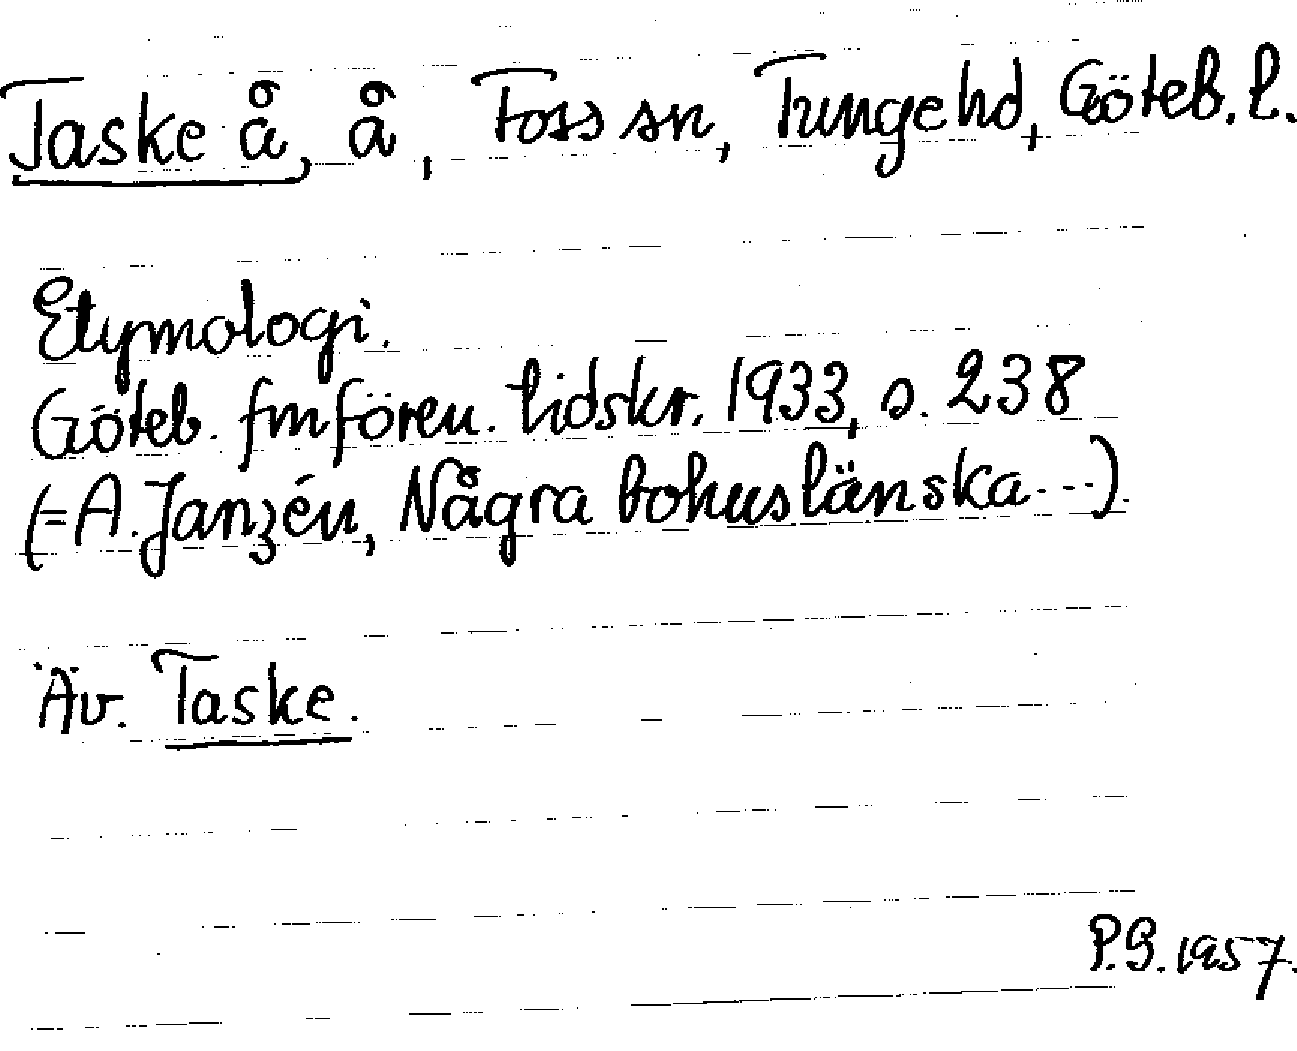 Taske å, å, Foss sn, Tunge hd, Göteb. l.
Etymologi.
Göteb. fmfören. tidskr. 1933, s. 238
(=A. Janzén, Några bohuslänska---).
Äv. Taske.
P.G. 1957.